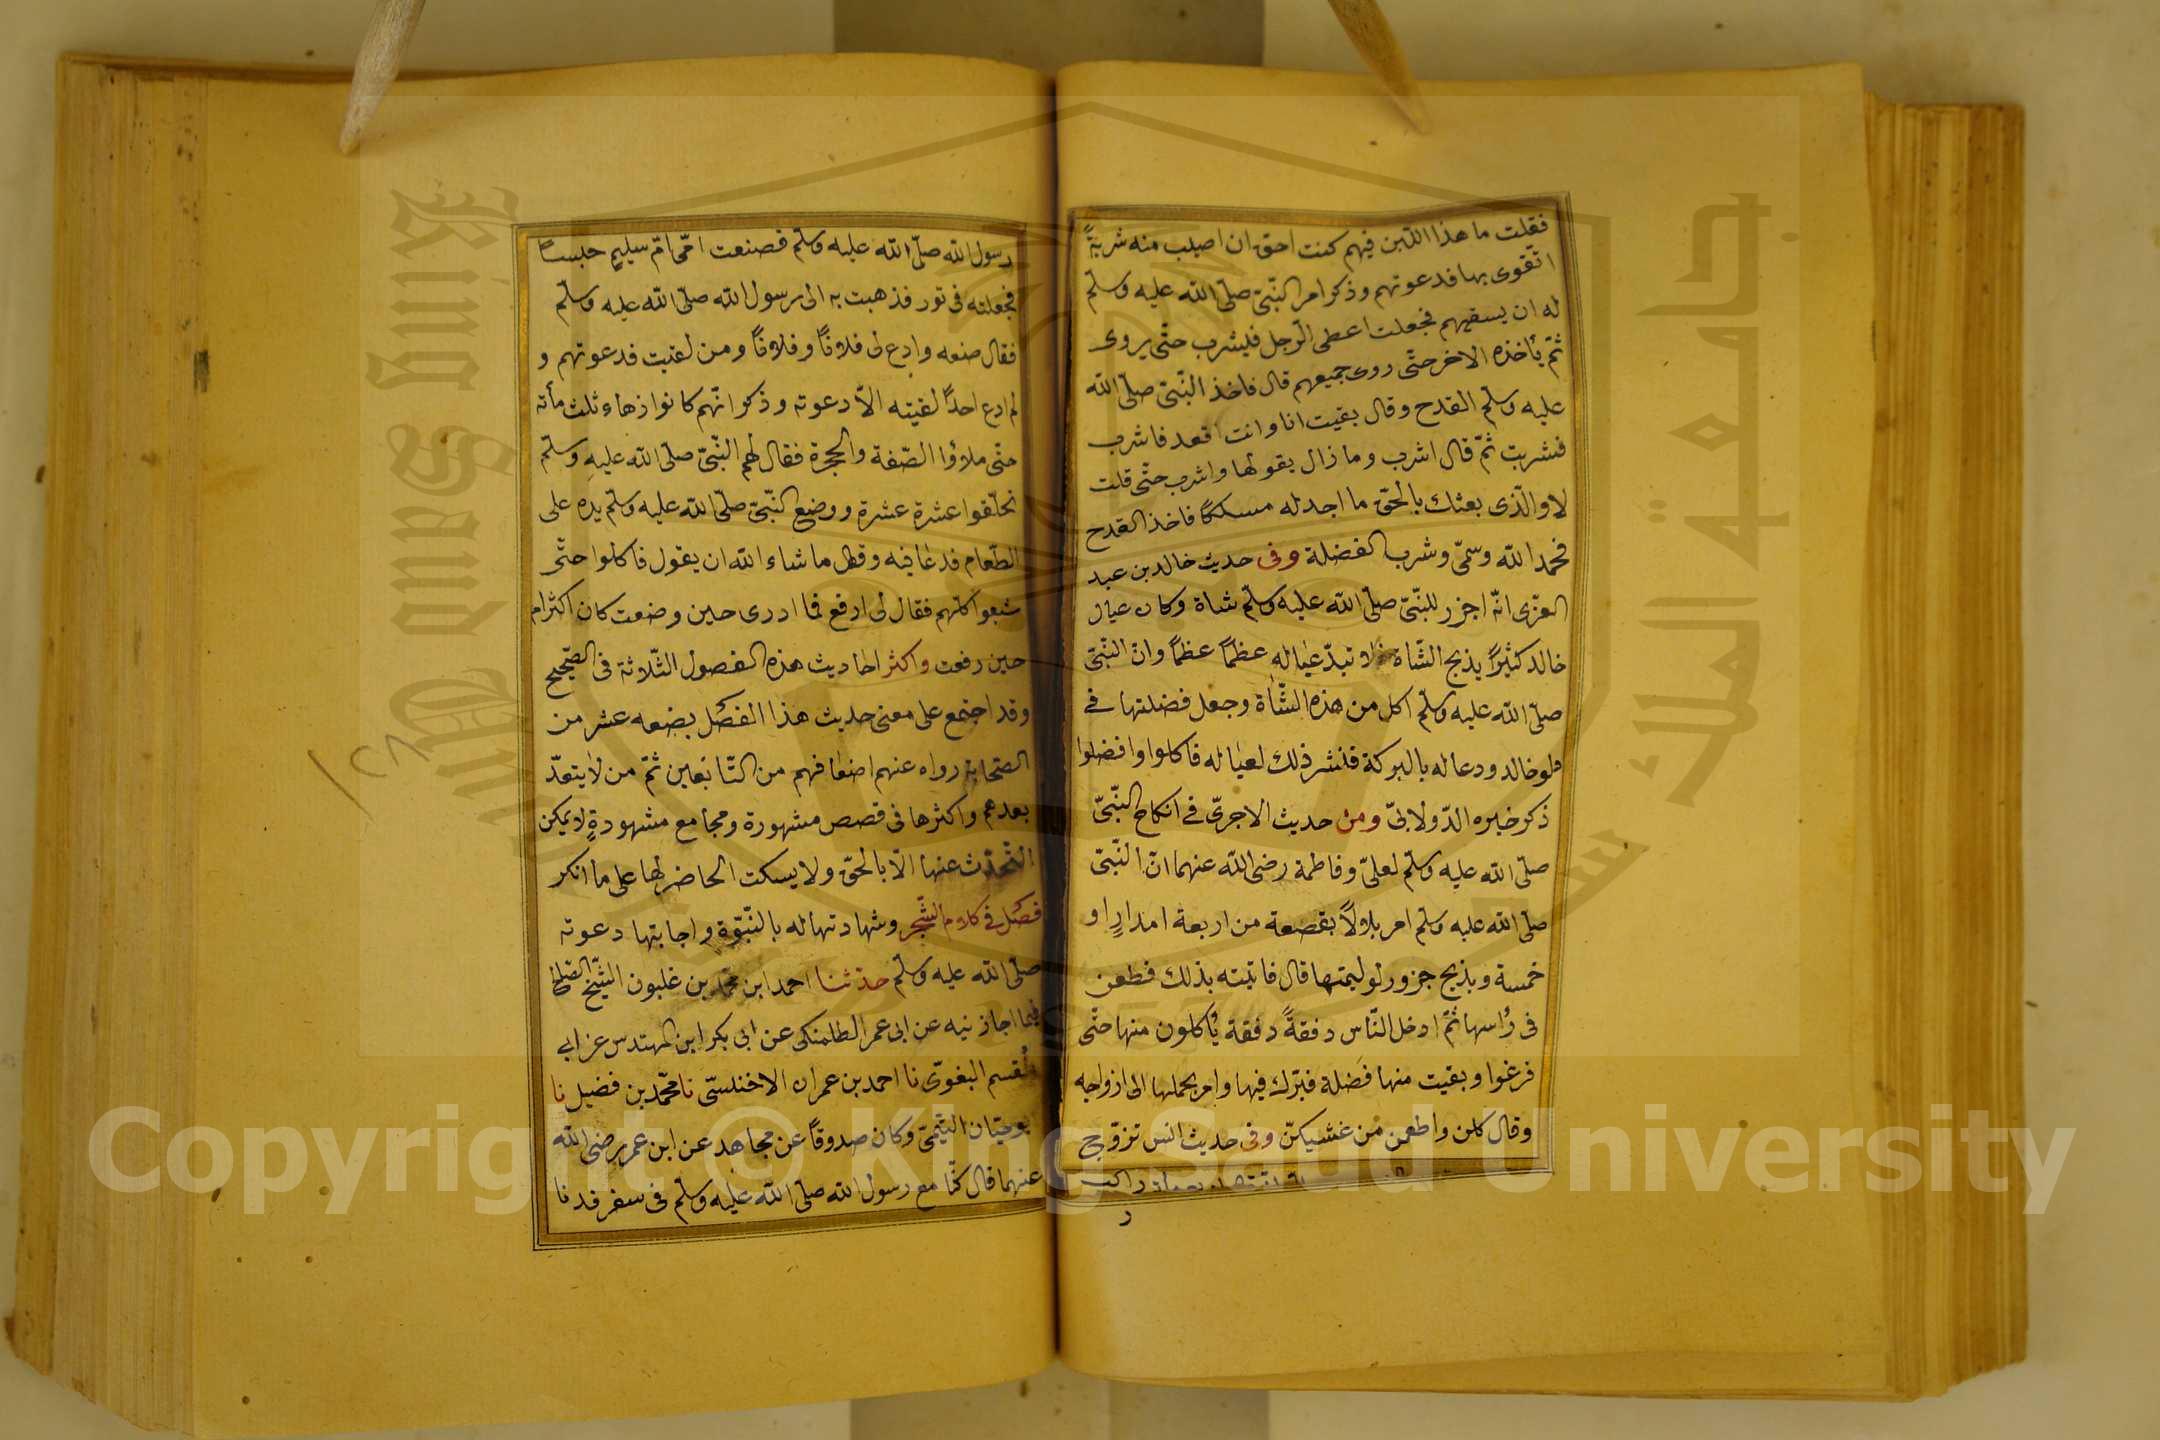 فقلت ما هذا اللبن فيهم كنت احق ان اصيب منه شربةً
اتقوى بها فدعوتهم وذكر امر النّبىّ صلّى الله عليه وسلّم
له ان يسقيهم فجعلت اعطى الرّجل فيشرب حتّى يروى
ثمّ يأخذه الاخر حتّى روى جميعهم قال فاخذ النّبىّ صلّى الله
عليه وسلّم القدح وقال بقيت انا وانت اقعد فاشرب
فشربت ثمّ قال اشرب وما زال يقولها واشرب حتّى قلت
لا والّذى بعثك بالحقّ ما اجد له مسلكًا فاخذ القدح
فحمد الله وسمّى وشرب الفضلة وفى حديث خالد بن عبد
العزّى انّه اجزر للنّبىّ صلّى الله عليه وسلّم شاة وكان عيال
خالد كثيرًا يذبح الشّاة فلا تبدّ عياله عظمًا عظمًا وانّ النّبىّ
صلّى الله عليه وسلّم اكل من هذه الشّاة وجعل فضلتها فى
دلو خالد ودعا له بالبركة فنثر ذلك لعياله فاكلوا وافضلوا
ذكر خبره الدّولابىّ ومن حديث الاجرىّ فى انكاح النّبىّ
صلّى الله عليه وسلّم لعلىّ وفاطمة رضى الله عنهما انّ النّبىّ
صلّى الله عليه وسلّم امر بلالًا بقصعة من اربعة امدادٍ او
خمسة وبذبح جزور لوليمتها قال فاتيته بذلك فطعن
فى رأسها ثمّ ادخل النّاس دفقةً دفقة يأكلون منها حتّى
فرغوا وبقيت منها فضلة فبرّك فيها وامر بحملها الى ازواجه
وقال كلن واطعمن من غشيكنّ وفى حديث انس تزوّج
ر
رسول الله صلّى الله عليه وسلّم فصنعت امّى امّ سليمٍ حيسًا
فجعلته فى تور فذهبت به الى رسول الله صلّى الله عليه وسلّم
فقال ضعه وادع لى فلانًا وفلانًا ومن لقيت فدعوتهم و
لم ادع احدًا لقيته الاّ دعوته وذكر انّهم كانوا زهاء ثلث مأته
حتّى ملاؤا الصّفة والحجرة فقال لهم النّبىّ صلّى الله عليه وسلّم
تحلّقوا عشرة عشرة ووضع النّبىّ صلّى الله عليه وسلّم يده على
الطّعام فدعا فيه وقال ما شاء الله ان يقول فاكلوا حتّى
شبعوا كلّهم فقال لى ارفع فما ادرى حين وضعت كان اكثر ام
حين رفعت واكثر احاديث هذه الفصول الثّلاثة فى الصّحيح
وقد اجتمع على معنى حديث هذا الفصل بضعه عشر من
الصّحابة رواه عنهم اضعافهم من التّابعين ثمّ من لا يتعدّ
بعدهم واكثرها فى قصص مشهورة ومجامع مشهودةٍ لا يمكن
التّحدّث عنها الاّ بالحقّ ولا يسكت الحاضر لها على ما انكر
فصل فى كلام الشّجر وشهادتها له بالنّبوّة واجابتها دعوته
صلّى الله عليه وسلّم حدّثنا احمد ابن محمّد بن غلبون الشّيخ الصّالح
فيما اجازنيه عن ابى عمر الطلمنكى عن ابى بكر ابن المهندس عن ابى
القسم البغوىّ نا احمد بن عمران الاخنسىّ نا محمّد بن فضيل نا
بوحيّان التّيمىّ وكان صدوقًا عن مجاهد عن ابن عمر رضى الله
عنهما قال كنّا مع رسول الله صلّى الله عليه وسلّم فى سفر فدنا
King Saud University
جامعة الملك سعود
1957
Copyright © King Saud University